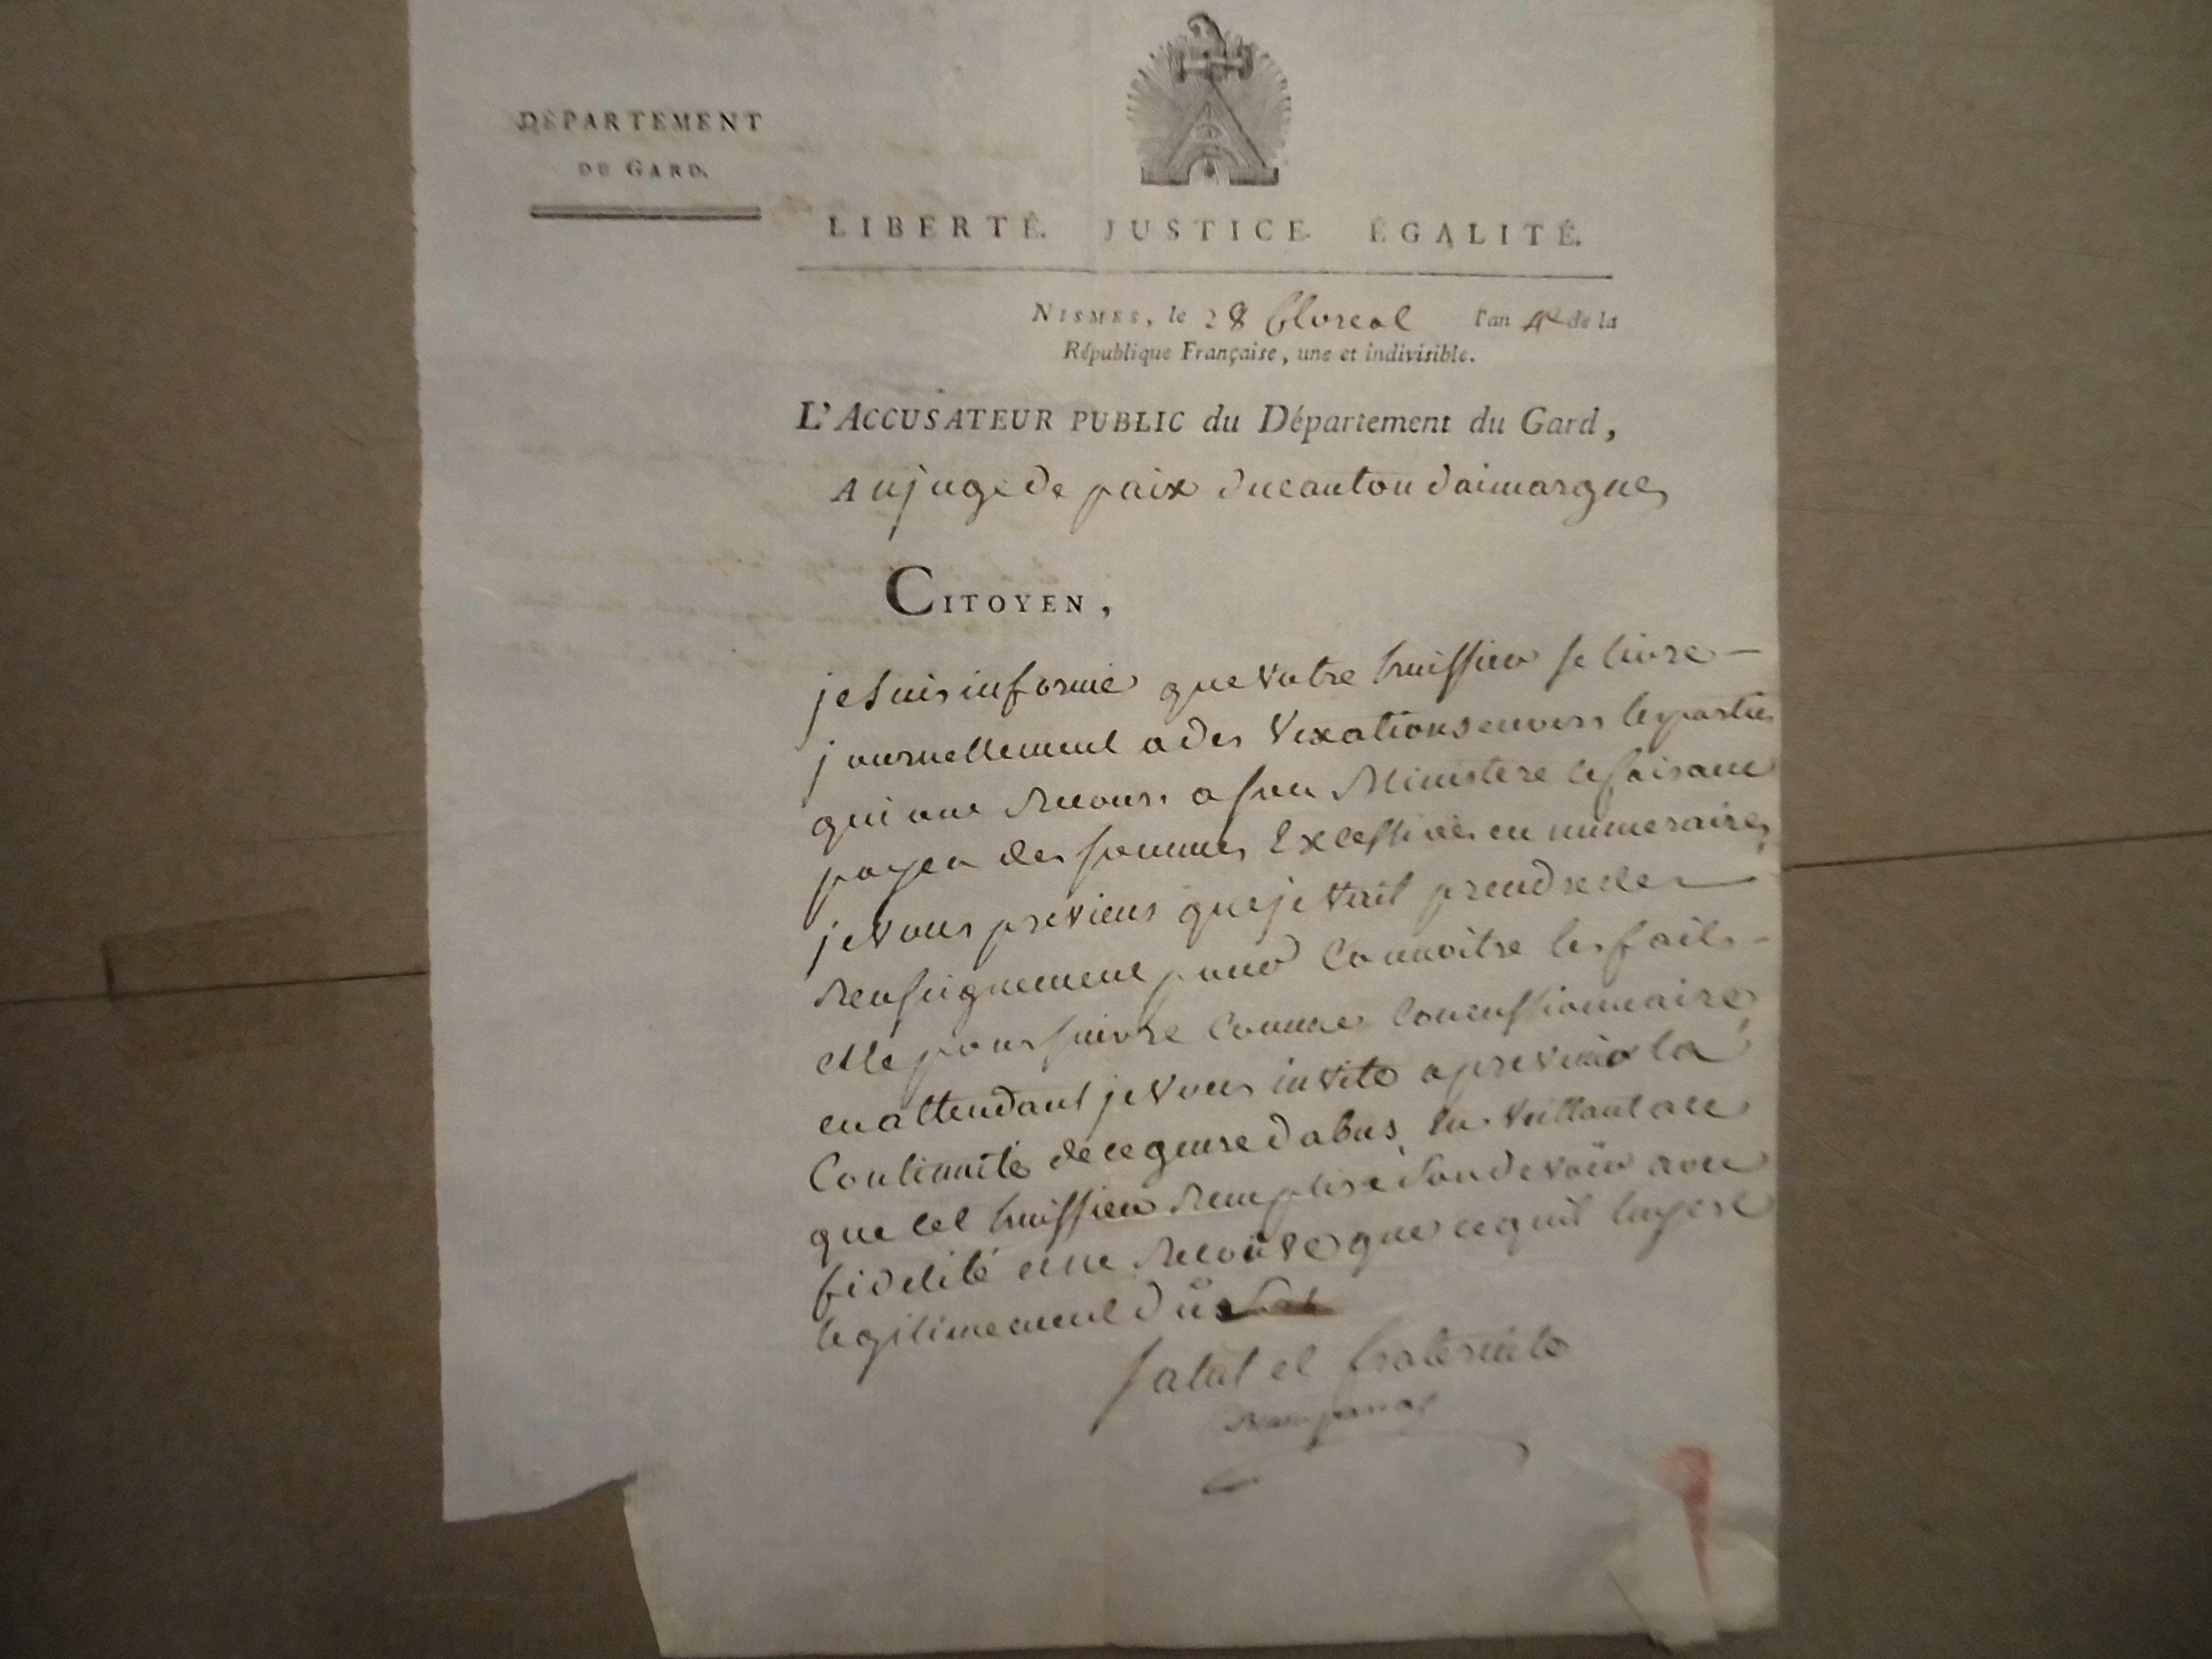 DÉPARTEMENT
DU GARD.
LIBERTÉ. JUSTICE. ÉGALITÉ.
NISMES, le 28 floreal l'an 4e de la
République Française, une et indivisible.
L'ACCUSATEUR PUBLIC du Département du Gard,
Au juge de paix du canton daimargues
CITOYEN,
je suis informé que votre huissier se livre
journellement a des vexations envers les parties
qui ont recours a son Ministere les faisant
payer des sommes Excessives en numeraire,
je vous previens que je vait prendre des
renseignement pour Connoitre les faits
et le poursuivre Comme Concussionnaire,
en attendant je vous invite a prevenir la
Continuité de ce genre dabus, en veillant a ce
que cet huissier remplisse son devoir avec
fidelité et ne recoive que ce quil luy est
legitimement dü
salut et fraternité